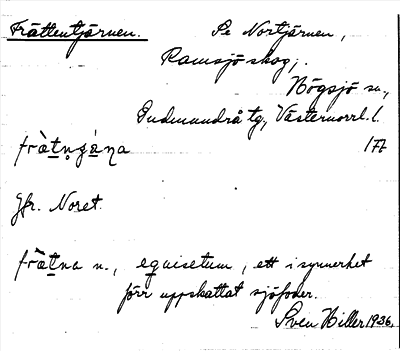 Frättentjärnen.
Se Nortjärnen,
Ramsjö skog,
Högsjö sn.,
Gudmundrå tg., Västernorrl. l.
177
Jfr. Noret.
frä̀tna n., equisetum, ett i synnerhet
förr uppskattat sjöfoder.
Sven Hiller 1936.